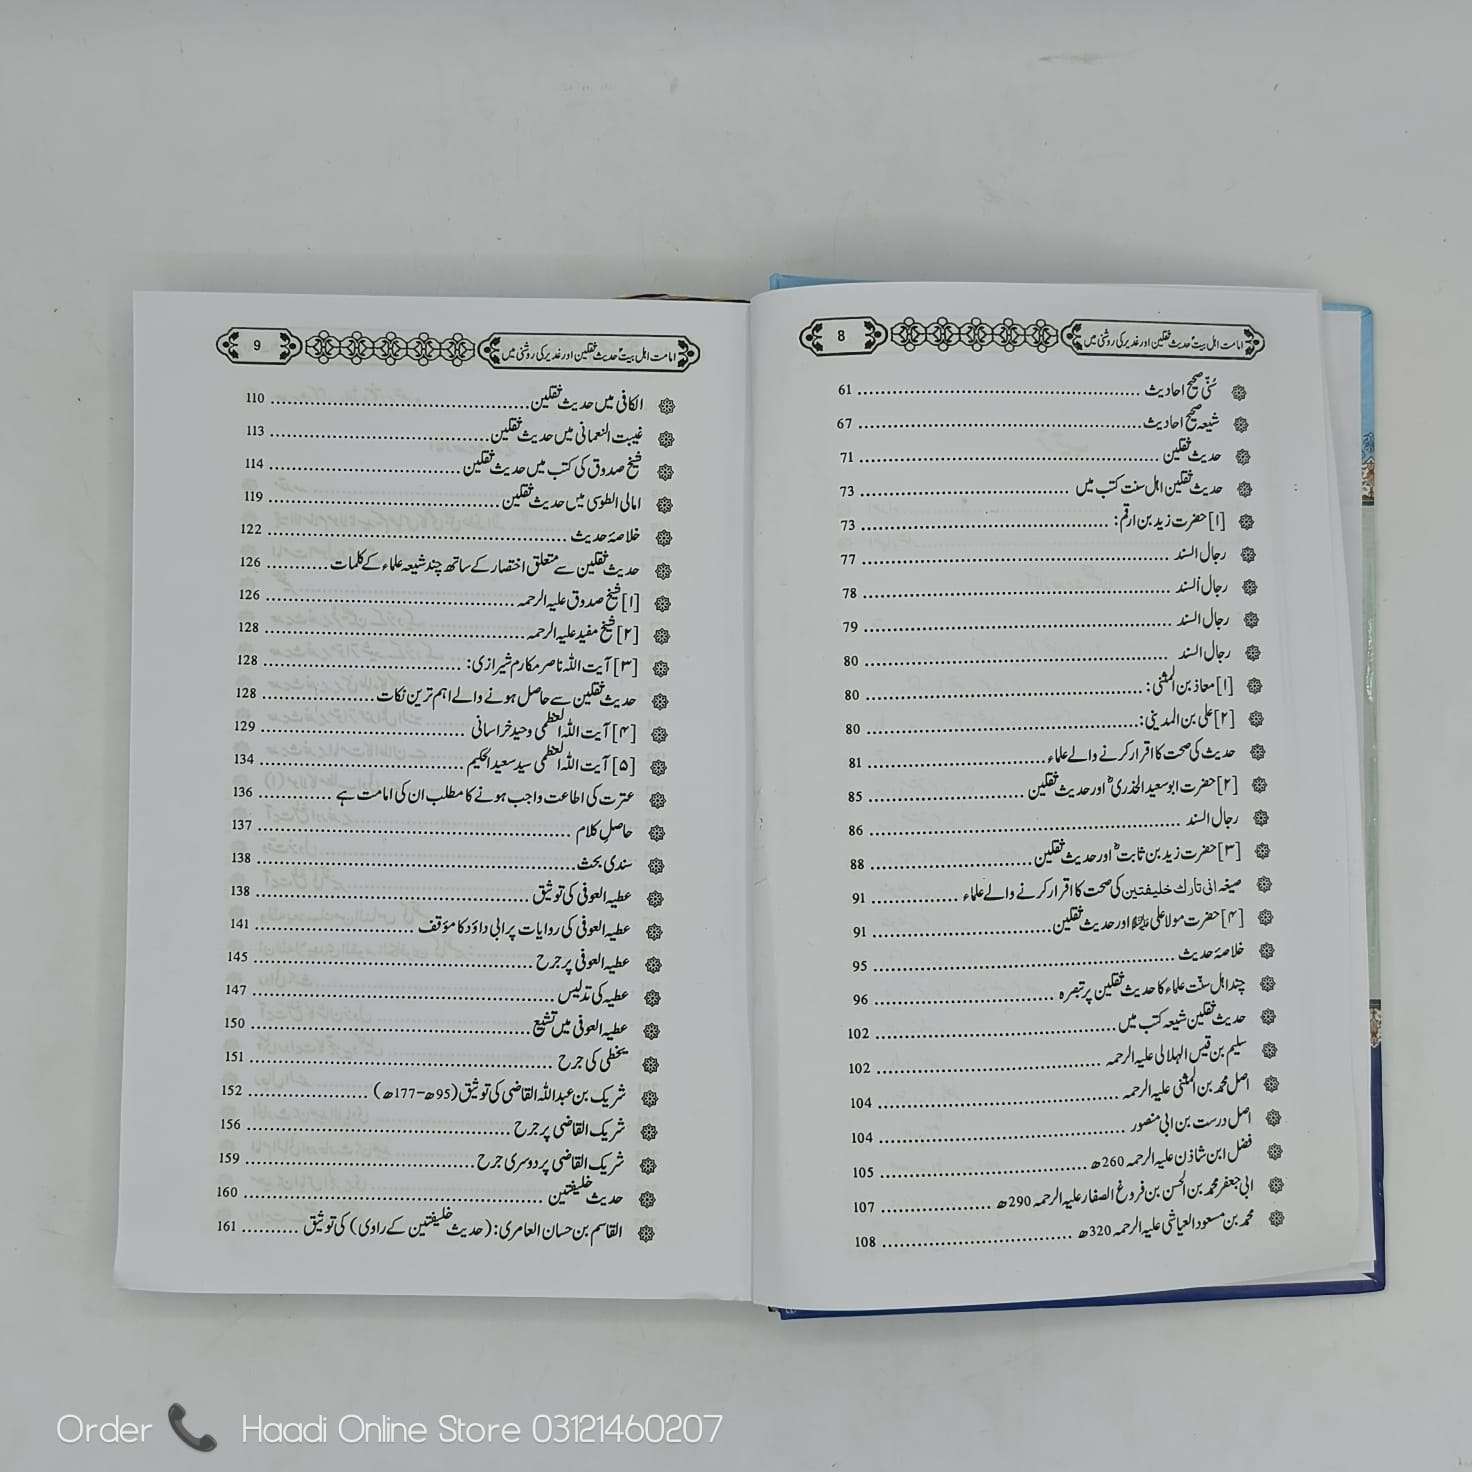 امامت اہل بیتؑ حدیث ثقلین اور غدیر کی روشنی میں 8
سُنّی صحیح احادیث ........ 61
شیعہ صحیح احادیث ........ 67
حدیث ثقلین ........ 71
حدیث ثقلین اہل سنت کتب میں ........ 73
[۱] حضرت زید بن ارقم: ........ 73
رجال السند ........ 77
رجال السند ........ 78
رجال السند ........ 79
رجال السند ........ 80
[۱] معاذ بن المثنی: ........ 80
[۲] علی بن المدینی: ........ 80
حدیث کی صحت کا اقرار کرنے والے علماء ........ 81
[۲] حضرت ابو سعید الخدریؓ اور حدیث ثقلین ........ 85
رجال السند ........ 86
[۳] حضرت زید بن ثابتؓ اور حدیث ثقلین ........ 88
صیغہ انی تارك خليفتين کی صحت کا اقرار کرنے والے علماء ........ 91
[۴] حضرت مولا علی علیہ السلام اور حدیث ثقلین ........ 91
خلاصۂ حدیث ........ 95
چند اہل سنّت علماء کا حدیث ثقلین پر تبصرہ ........ 96
حدیث ثقلین شیعہ کتب میں ........ 102
سلیم بن قیس الہلالی علیہ الرحمہ ........ 102
اصل محمد بن المثنی علیہ الرحمہ ........ 104
اصل درست بن ابی منصور ........ 104
فضل ابن شاذن علیہ الرحمہ 260ھ ........ 105
ابی جعفر محمد بن الحسن بن فروغ الصفار علیہ الرحمہ 290ھ ........ 107
محمد بن مسعود العیاشی علیہ الرحمہ 320ھ ........ 108
امامت اہل بیتؑ حدیث ثقلین اور غدیر کی روشنی میں 9
الکافی میں حدیث ثقلین ........ 110
غیبت النعمانی میں حدیث ثقلین ........ 113
شیخ صدوق کی کتب میں حدیث ثقلین ........ 114
امالی الطوسی میں حدیث ثقلین ........ 119
خلاصۂ حدیث ........ 122
حدیث ثقلین سے متعلق اختصار کے ساتھ چند شیعہ علماء کے کلمات ........ 126
[۱] شیخ صدوق علیہ الرحمہ ........ 126
[۲] شیخ مفید علیہ الرحمہ ........ 128
[۳] آیت اللہ ناصر مکارم شیرازی: ........ 128
حدیث ثقلین سے حاصل ہونے والے اہم ترین نکات ........ 128
[۴] آیت اللہ العظمی وحید خراسانی ........ 129
[۵] آیت اللہ العظمی سید سعید الحکیم ........ 134
عترت کی اطاعت واجب ہونے کا مطلب ان کی امامت ہے ........ 136
حاصلِ کلام ........ 137
سندی بحث ........ 138
عطیہ العوفی کی توثیق ........ 138
عطیہ العوفی کی روایات پر ابی داؤد کا مؤقف ........ 141
عطیہ العوفی پر جرح ........ 145
عطیہ کی تدلیس ........ 147
عطیہ العوفی میں تشیع ........ 150
یخطی کی جرح ........ 151
شریک بن عبداللہ القاضی کی توثیق (95ھ-177ھ) ........ 152
شریک القاضی پر جرح ........ 156
شریک القاضی پر دوسری جرح ........ 159
حدیث خلیفتین ........ 160
القاسم بن حسان العامری: (حدیث خلیفتین کے راوی) کی توثیق ........ 161
Order Haadi Online Store 03121460207